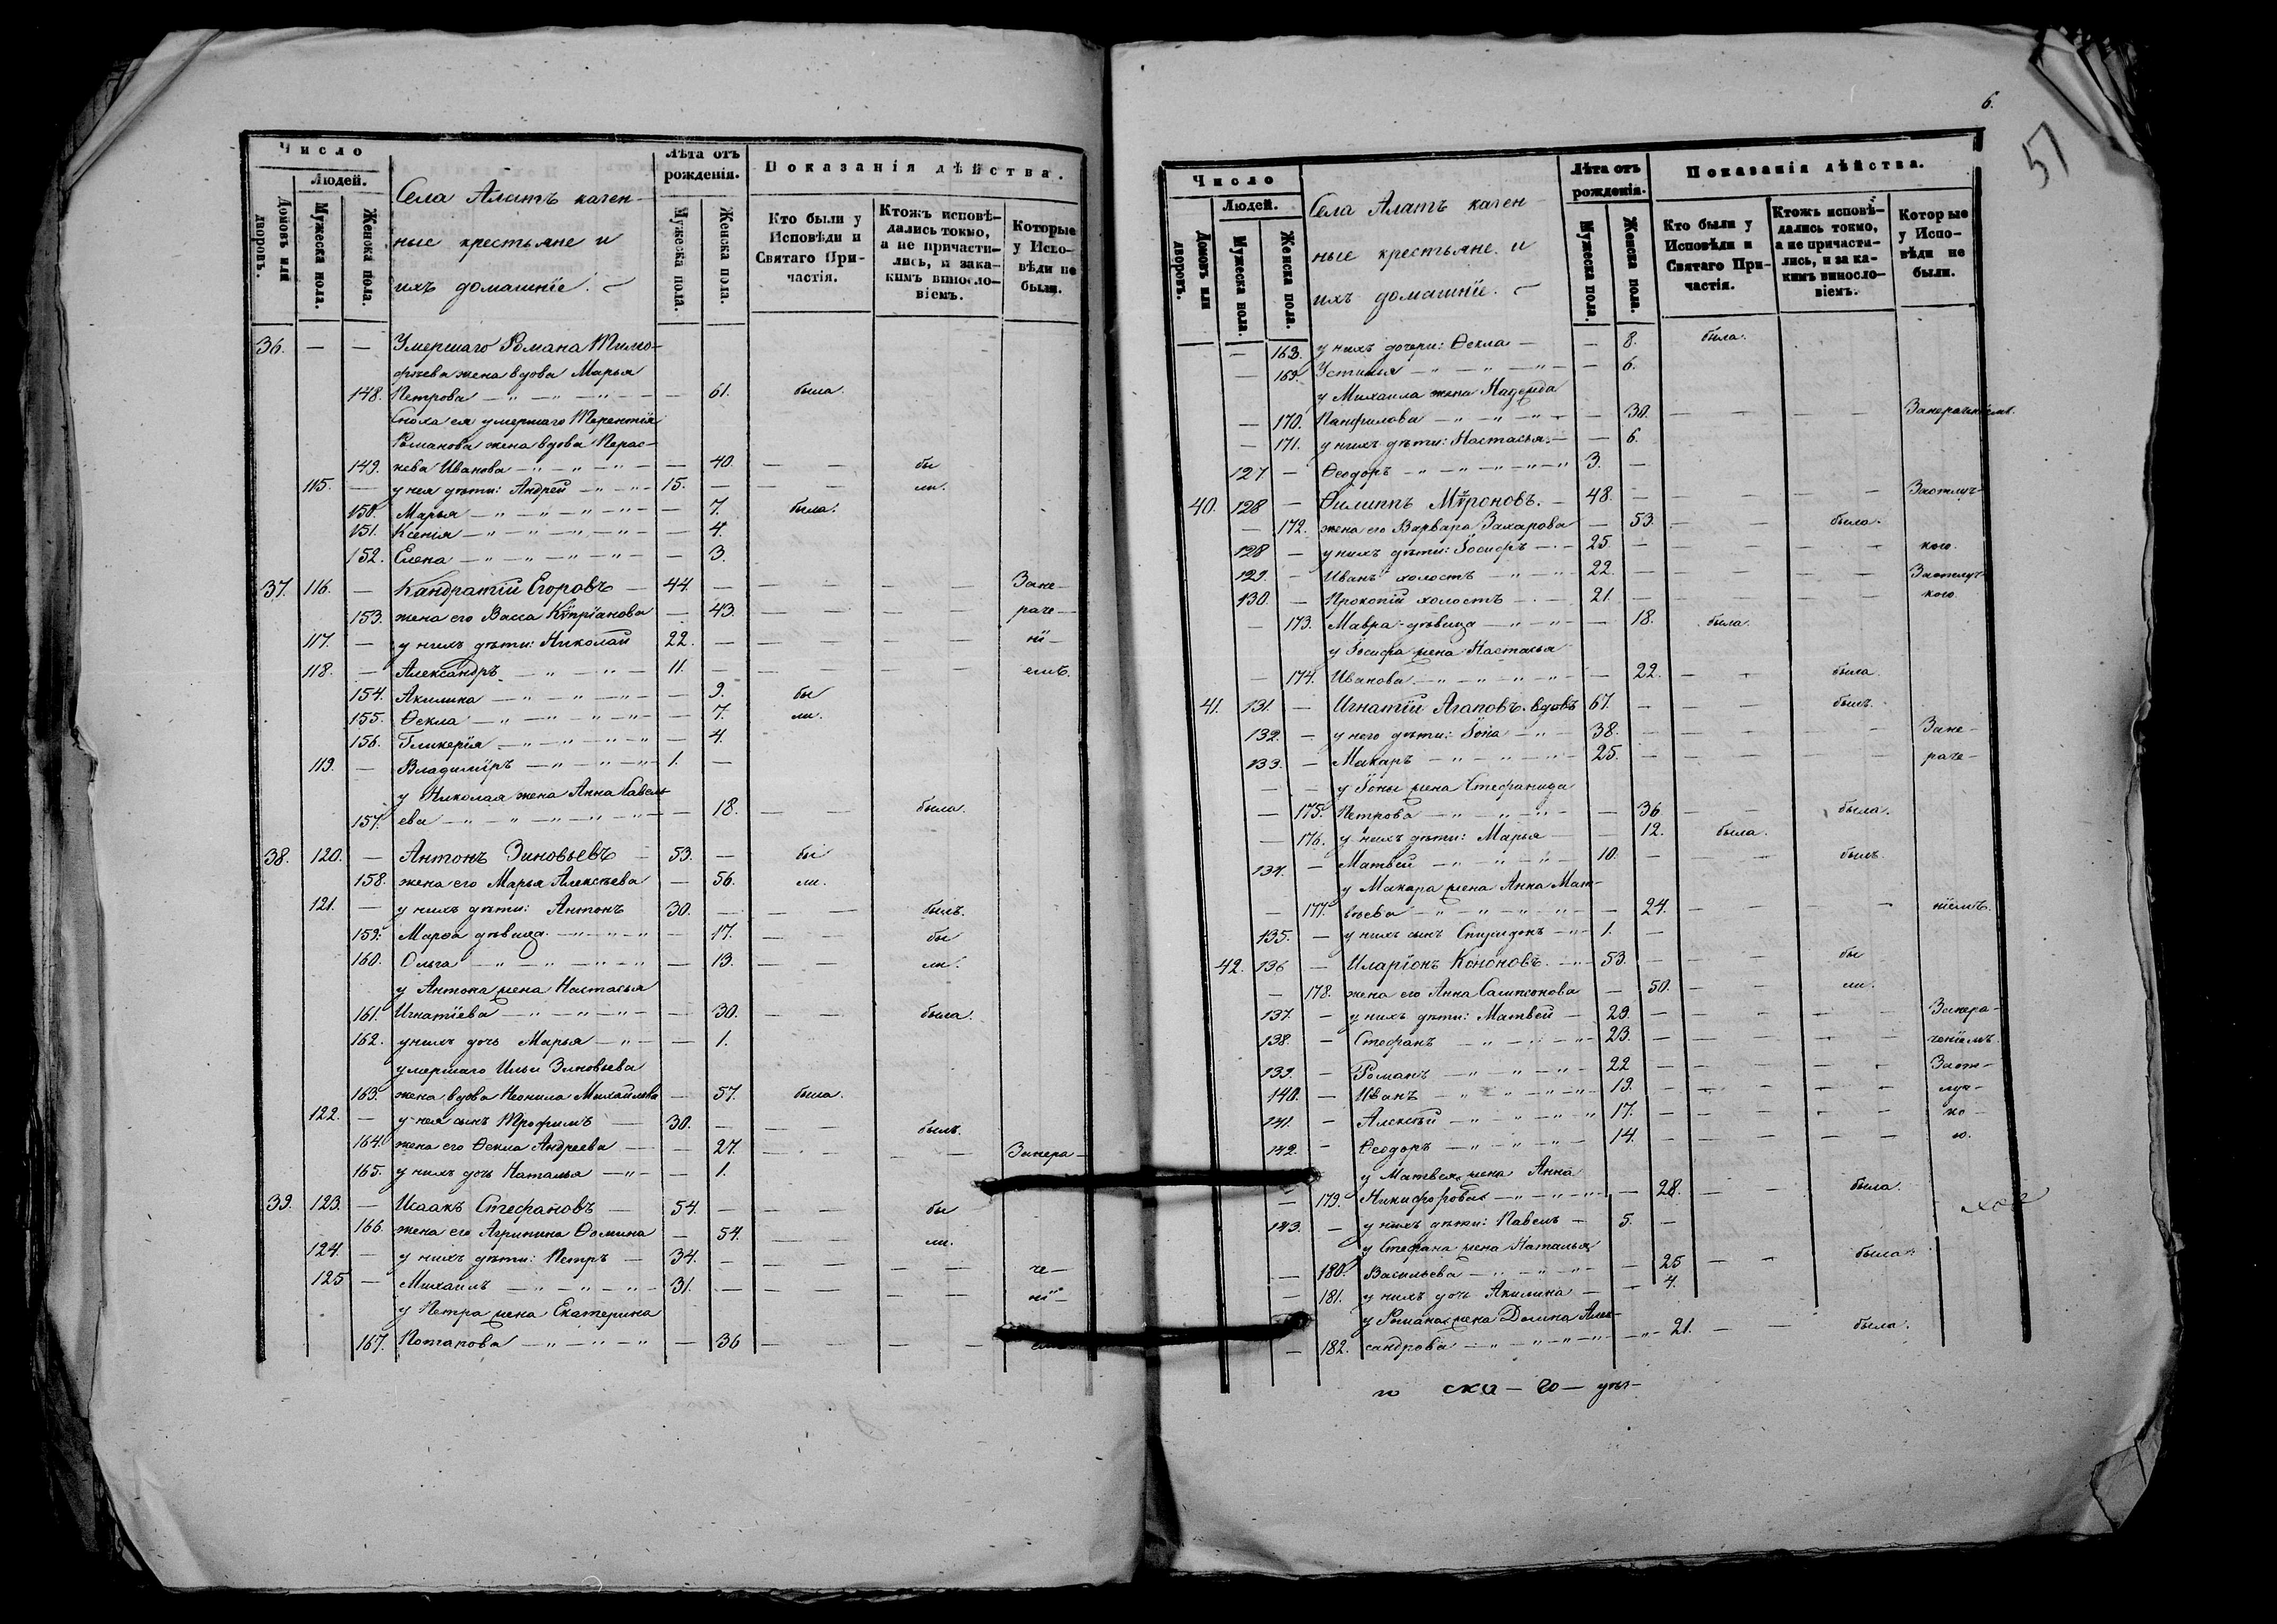 Число
Людей.
Домовъ или дворовъ.
Мужеска пола.
Женска пола.
Села Алатъ казен-
ные крестьяне и
ихъ домашніе.
Лѣта отъ рожденія.
Мужеска пола.
Женска пола.
Показанія дѣйства.
Кто были у Исповѣди и Святаго Причастія.
Ктожъ исповѣдались токмо, а не причастились, и зака-кимъ винословіемъ.
Которые у Исповѣди не были.
36. — — Умершаго Романа Тимо-
фѣева жена вдова Марья
148. Петрова — 61. была.
Сноха ея умершаго Терентія
Романова жена вдова Парас-
149. кева Иванова — 40. — — бы
115. — у нея дѣти: Андрей — 15. — — — ли.
150. Марья — 7. была.
151. Ксенія — 4.
152. Елена — 3.
37. 116. — Кандратій Егоровъ — 44. — — — — — Зане-
153. жена его Васса Кѵпріанова — 43. — — — — раче-
117. — у нихъ дѣти: Николай 22. — — — — — ні-
118. — Александръ — 11. — — — — — емъ.
154. Акилина — 9. бы
155. Ѳекла — 7. ли.
156. Гликерія — 4.
119. — Владиміръ — 1. —
у Николая жена Анна Савель
157. ева — 18. — — была.
38. 120. — Антонъ Зиновьевъ — 53. — бы
158. жена его Марья Алексѣева — 56. ли.
121. — у нихъ дѣти: Антонъ 30. — — — былъ.
159. Марѳа дѣвица — 17. — — бы
160. Ольга — 13. — — ли.
у Антона жена Настасья
161. Игнатіева — 30. — — была.
162. у нихъ дочь Марья — 1.
умершаго Ильи Зиновьева
163. жена вдова Неонила Михайлова — 57. была.
122. — у нея сынъ Трофимъ — 30. — — — былъ.
164. жена его Ѳекла Андреева — 27. — — — — Занера-
165. у нихъ дочь Наталья — 1.
39. 123. — Исаакъ Стефановъ — 54. — — — бы
166. жена его Агрипина Ѳомина — 54. — — ли.
124. — у нихъ дѣти: Петръ — 34. — — — — — че-
125 — Михаилъ — 31. — — — — — ні-
у Петра жена Екатерина
167. Потапова — 36 — — — —
6.
57
Число
Людей.
Домовъ или дворовъ.
Мужеска пола.
Женска пола.
Села Алатъ казен-
ные крестьяне и
ихъ домашніе.
Лѣта отъ рожденія.
Мужеска пола.
Женска пола.
Показанія дѣйства.
Кто были у Исповѣди и Святаго Причастія.
Ктожъ исповѣдались токмо, а не причастились, и за ка-кимъ винословіемъ.
Которые у Исповѣди не были.
— 168. у нихъ дочери: Ѳекла — 8. была.
— 169. Устинія — 6.
у Михаила жена Надежда
— 170. Панфилова — 30. — — — — Занераченіемъ.
— 171. у нихъ дѣти: Настасья — 6.
127 — Ѳеодоръ — 3. —
40. 128 — Филиппъ Мѵроновъ — 48. — — — — — Заотлуч-
— 172. жена его Варвара Захарова — 53. — — была.
128 — у нихъ дѣти: Іосифъ — 25. — — — — — кою.
129. — Иванъ холостъ — 22. — — — — — Заотлуч-
130. — Прокопій холостъ — 21. — — — — — кою.
— 173. Мавра дѣвица — 18. была.
у Іосифа жена Настасья
— 174. Иванова — 22. — — была.
41. 131. — Игнатій Агаповъ вдовъ 67. — — — былъ.
132. — у него дѣти: Іона — 38. — — — — — Зане-
133. — Макаръ — 25. — — — — — раче-
— — у Іоны жена Стефанида
— 175. Петрова — 36 — — была.
— 176. у нихъ дѣти: Марья — 12. была.
134. — Матвей — 10. — — — былъ.
у Макара жена Анна Мат-
— 177. вѣева — 24. — — — — ніемъ.
135. — у нихъ сынъ Спиридонъ — 1. —
42. 136 — Иларіонъ Кононовъ. — 53. — — — бы
— 178. жена его Анна Сампсонова — 50. — — ли.
137. — у нихъ дѣти: Матвей — 29. — — — — — Занера-
138. — Стефанъ — 23. — — — — — ченіемъ.
139. — Романъ — 22 — — — — — Заот-
140. — Иванъ — 19. — — — — — луч-
141. — Алексѣй — 17. — — — — — ко-
142. — Ѳеодоръ — 14. — — — — — ю.
у Матвея жена Анна
— 179. Никифорова — 28. — — была.
143. — у нихъ дѣти: Павелъ — 5. —
у Стефана жена Наталья
— 180. Васильева — 25 — — была.
— 181. у нихъ дочь Акилина — 4.
у Романа жена Домна Алек-
— 182. сандрова — 21. — — была.